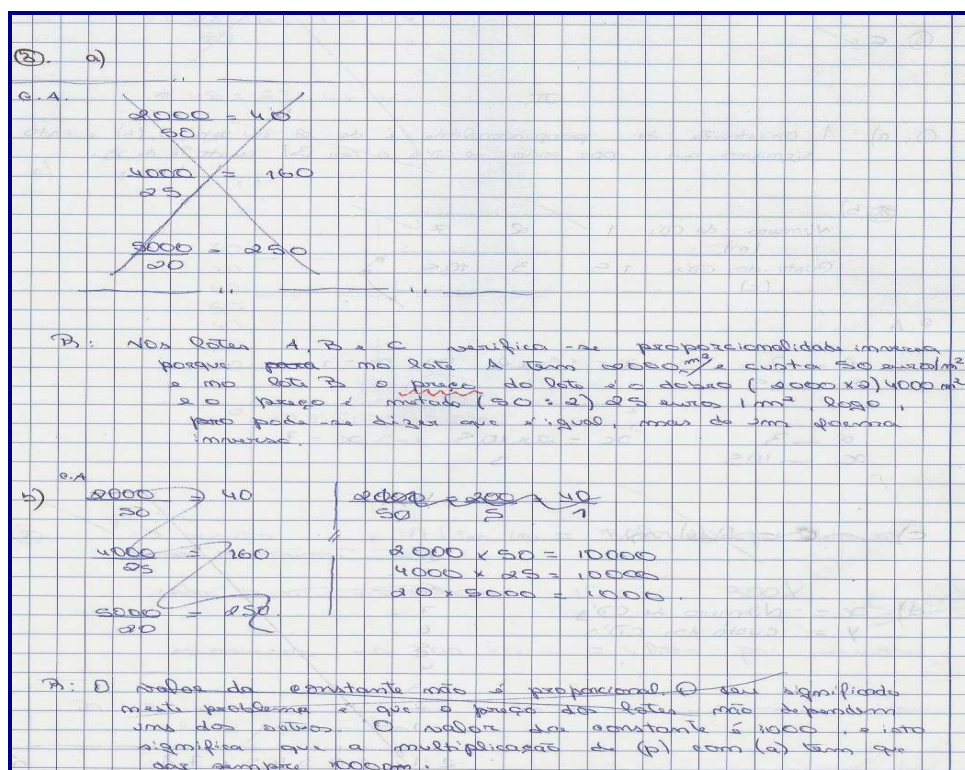 3. a)
C.A.
2000/50 = 40
4000/25 = 160
5000/20 = 250
R: Nos lotes A, B e C verifica-se proporcionalidade inversa
porque para no lote A tem 2000 m² e custa 50 euro/m²
e no lote B o preço do lote é o dobro (2000 x 2) 4000 m²
e o preço é metade (50 : 2) 25 euros / m², logo,
pro pode-se dizer que é igual, mas de um poema
inversa.
b) C.A
2000/50 = 40
4000/25 = 160
5000/20 = 250
2000/50 = 200/5 = 40/1
2000 x 50 = 10000
4000 x 25 = 10000
20 x 5000 = 1000
R: O valor da constante não é proporcional. O seu significado
neste problema é que o preço dos lotes não dependem
uns dos outros. O valor da constante é 1000, e isto
significa que a multiplicação de (p) com (a) tem que
dar sempre